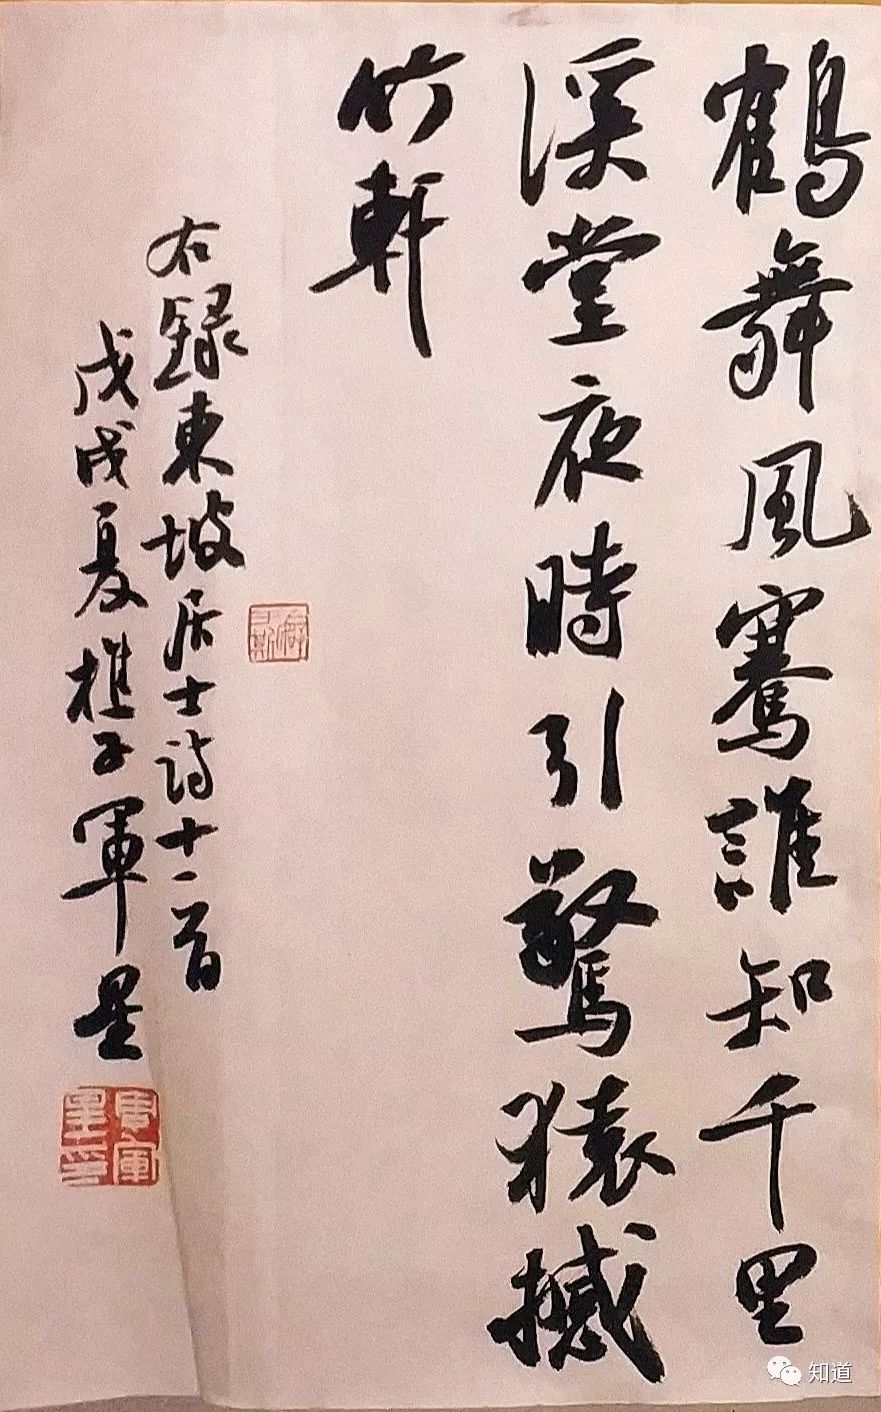 鶴舞風騫誰知千里
溪堂夜時引驚猿撼
竹軒
右録東坡居士詩十一首
戊戌夏樵子軍星
知道